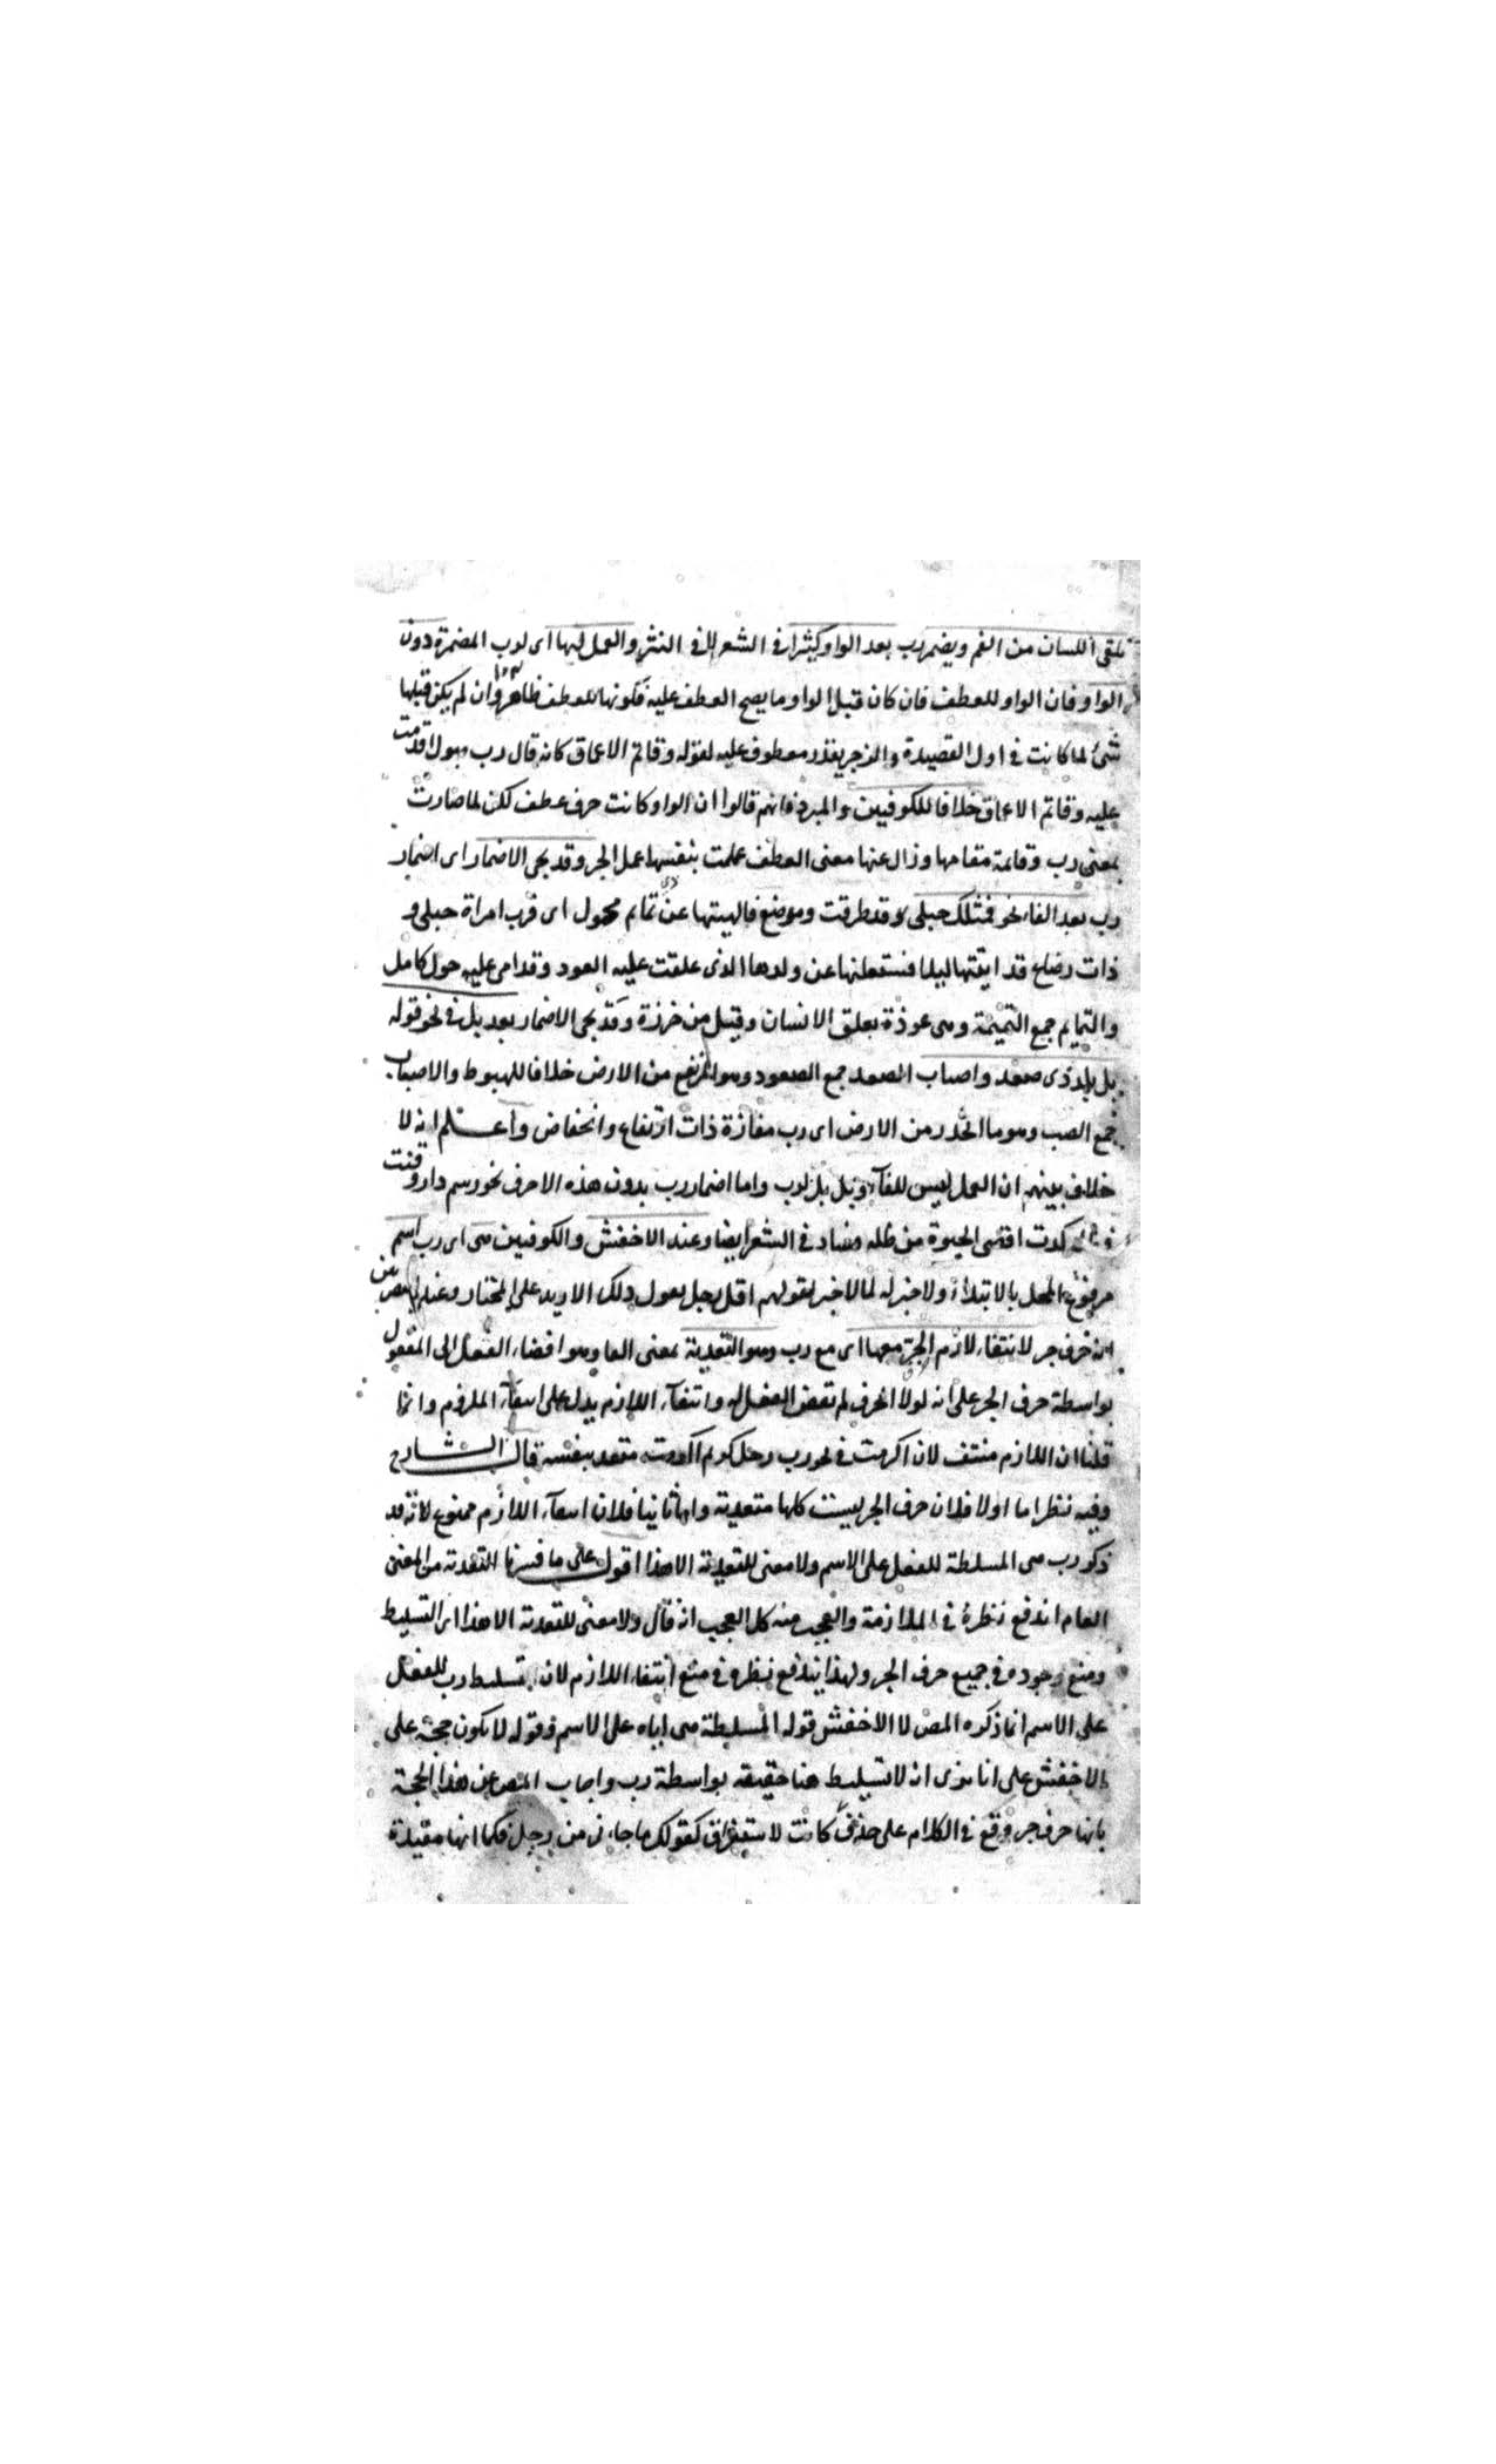 تلقى اللسان من الفم ويضمر رب بعد الواو كثيرا في الشعر لا في النثر والعمل لها اى لرب المضمرة دون
الواو فان الواو للعطف فان كان قبل الواو ما يصح العطف عليه فكونها للعطف ظاهر وان لم يكن قبلها
شئ لما كانت في اول القصيدة والرجز يقدر معطوف عليه لقوله وقاتم الاعماق كانه قال رب هول اقدمت
عليه وقاتم الاعماق خلافا للكوفيين والمبرد فانهم قالوا ان الواو كانت حرف عطف لكن لما صارت
بمعنى رب وقائمة مقامها وزال عنها معنى العطف عملت بنفسها عمل الجر وقد يجى الاضمار اى اضمار
رب بعد الفاء نحو فمثلك حبلى قد طرقت وموضع فالهيتها عن ذى تمايم محول اى فرب امراة حبلى و
ذات رضاع قد اتيتها ليلا فشغلتها عن ولدها الذى علقت عليه العود وقد اتى عليه حول كامل
والتمايم جمع التميمة وهى عوذة يعلق الانسان وقيل من خرزة وقد يجى الاضمار بعد بل في نحو قوله
بل بلد ذى صعد واصباب الصعد جمع الصعود وهو المرتفع من الارض خلافا للهبوط والاصباب
جمع الصب وهو ما انحدر من الارض اى رب مفازة ذات ارتفاع وانخفاض واعلم انه لا
خلاف بينهم ان العمل ليس للفاء وبل بل لرب واما اضمار رب بدون هذه الاحرف نحو رسم دار وقفت
في كدت اقضى الحيوة من طلله فشاد في الشعر ايضا وعند الاخفش والكوفيين هى اى رب اسم
مرفوع المحل بالابتداء ولا خبر له لما لا خبر لقولهم اقل رجل يقول ذلك الا زيد على المختار وعند البصريين
انه حرف جر لانتفاء لازم الجر معها اى مع رب وهو التعدية بمعنى العام وهو افضاء الفعل الى المفعول
بواسطة حرف الجر على انه لولا الحرف لم تفض الفعل اليه وانتفاء اللازم يدل على انتفاء الملزوم وانما
قلنا ان اللازم منتف لان اكرمت في نحو رب رجل كريم اكرمت متعد بنفسه قال الشارح
وفيه نظر اما اولا فلان حرف الجر ليست كلها متعدية واما ثانيا فلان انتفاء اللازم ممنوع لانه قد
ذكر رب هى المسلطة للفعل على الاسم ولا معنى للتعدية الا هذا اقول على ما فسرنا التعدية من المعنى
العام اندفع نظره في الملازمة والعجب منه كل العجب انه قال ولا معنى للتعدية الا هذا اى التسليط
ومنع وجوده في جميع حرف الجر ولهذا يندفع نظره في منع انتفاء اللازم لان تسليط رب للفعل
على الاسم انما ذكره المص لا الاخفش قوله المسلطة هى اياه على الاسم فقوله لا يكون حجة على
الاخفش على انا نرى ان لا تسليط هنا حقيقة بواسطة رب واجاب المص عن هذا الحجة
بانها حرف جر وقع في الكلام على حذف كانت لاستغراق كقولك ما جاءنى من رجل فكما انها مقيدة